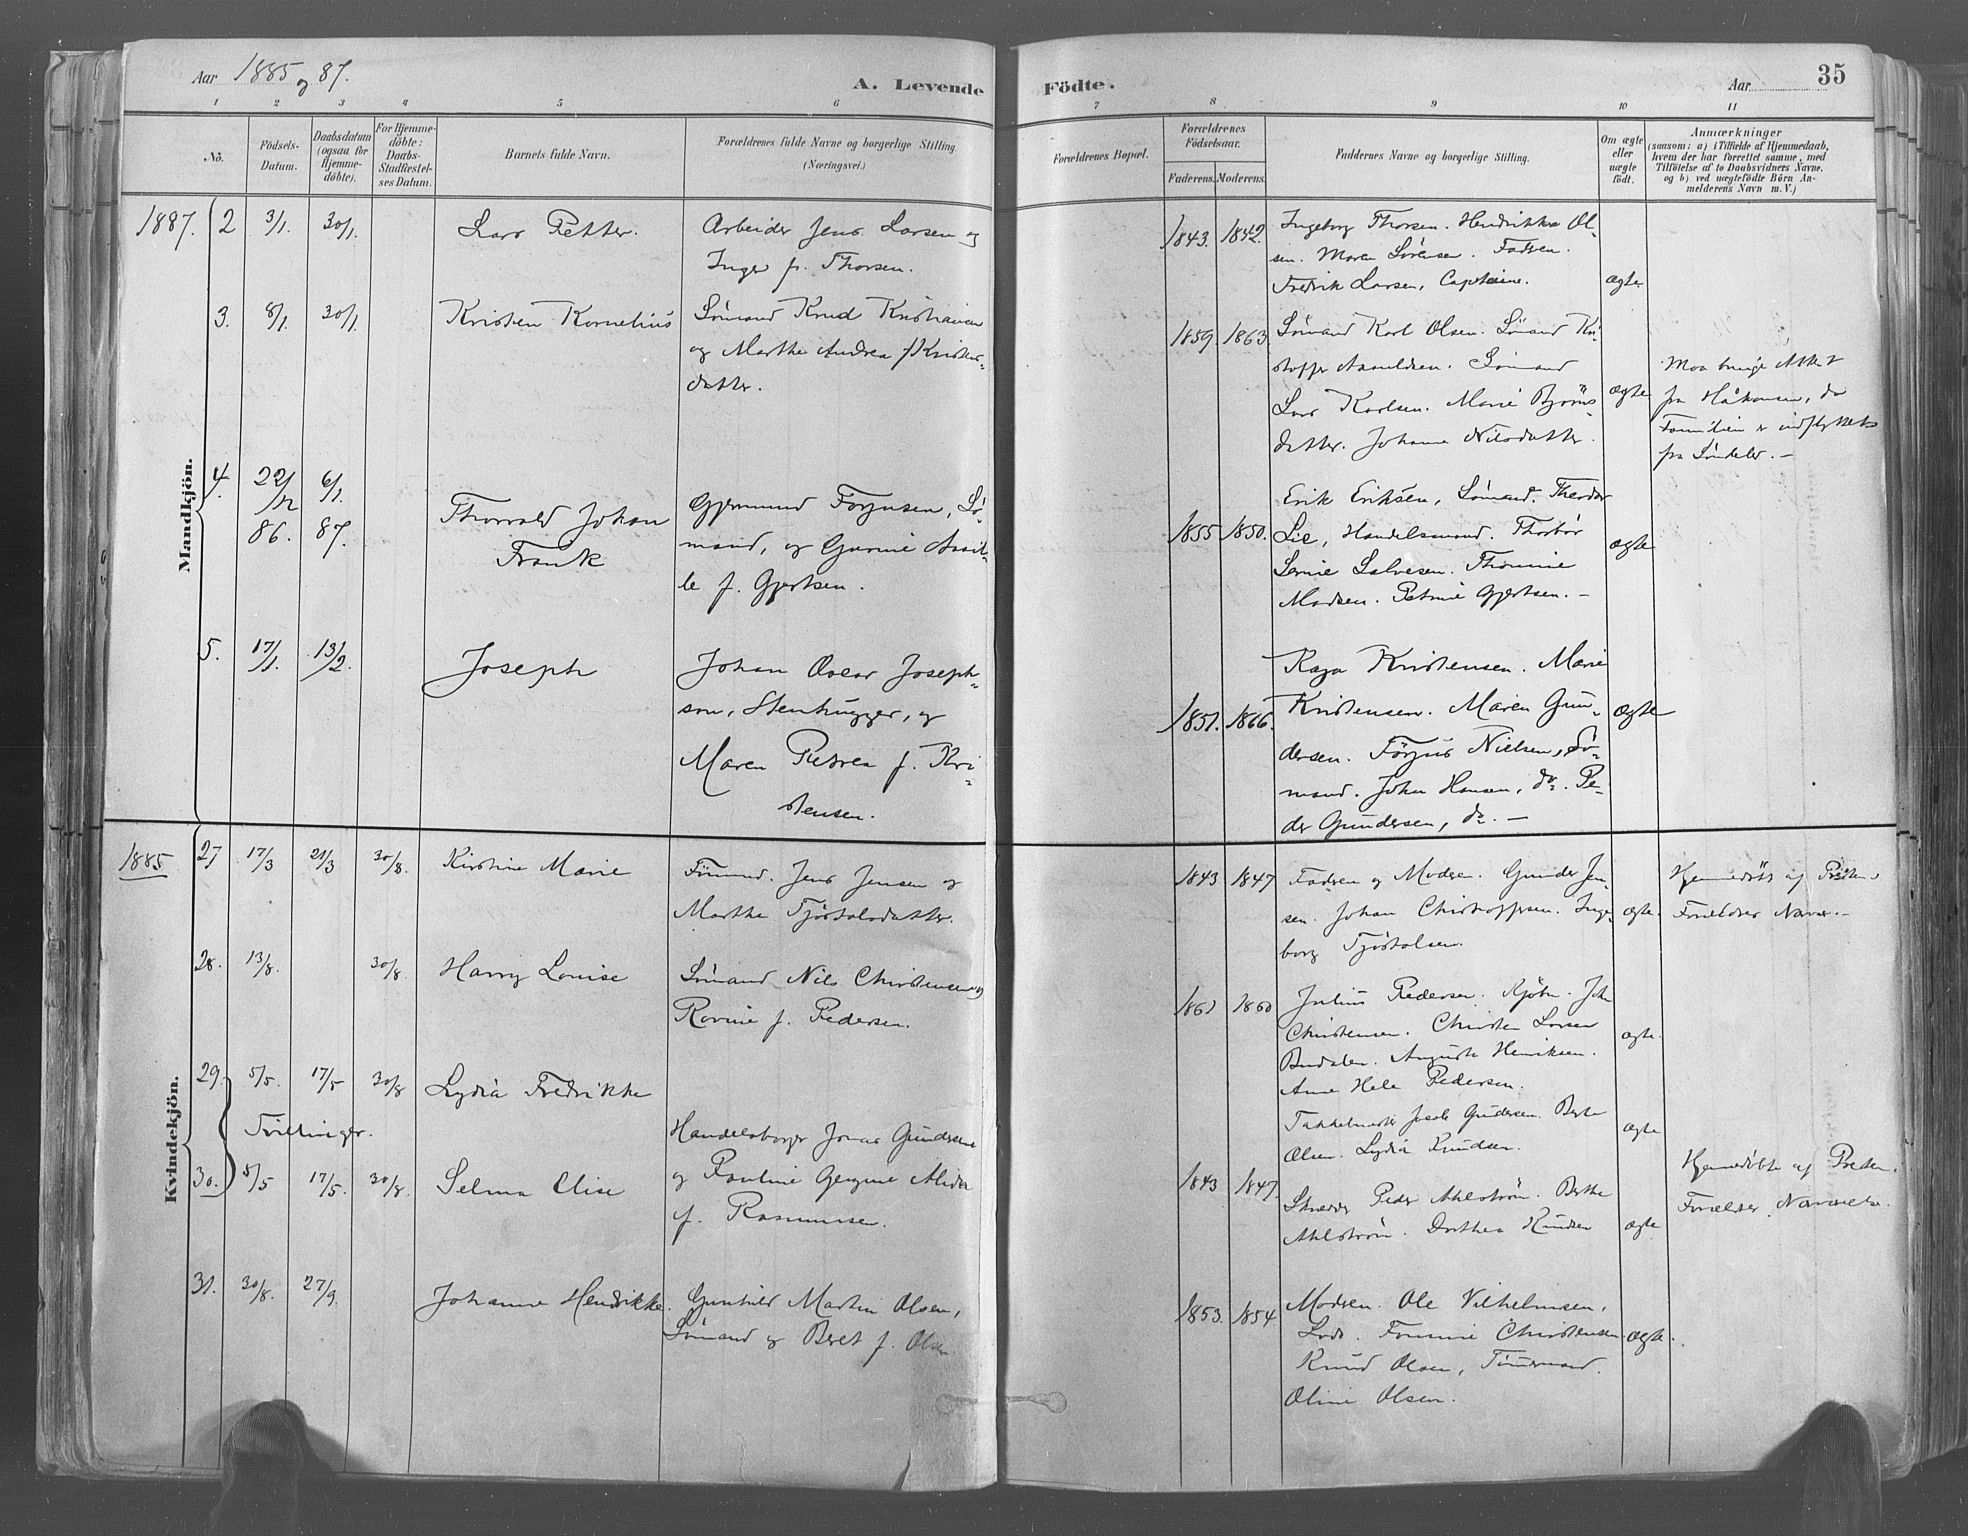 Aar 1885 og 87.
A. Levende Födte.
Aar
35
1 2 3 4 5 6 7 8 9 10 11
No.
Födsels-Datum.
Daabsdatum (ogsaa for Hjemme-döbte).
For Hjemme-döbte: Daabs-Stadfæstel-ses Datum.
Barnets fulde Navn.
Forældrenes fulde Navne og borgerlige Stilling (Næringsvei.)
Forældrenes Bopæl.
Forældrenes Födselsaar.
Faderens. Moderens.
Faddernes Navne og borgerlige Stilling.
Om ægte eller uægte födt.
Anmærkninger
(saasom: a) i Tilfælde af Hjemmedaab,
hvem der har forrettet samme, med
Tilföielse af to Daabsvidners Navne,
og b) ved uægtefödte Börn An-
melderens Navn m. V.)
Mandkjön.
1887. 2 3/1. 30/1. Lars Petter.
Arbeider Jens Larsen og
Inger f. Thorsen.
1843. 1842.
Ingeborg Thorsen. Hendrikke Ol-
sen. Maren Sörensen. Fadren.
Fredrik Larsen, Captaine.
ægte
3. 8/1. 30/1. Kristen Kornelius
Sömand Knud Kristiansen
og Marthe Andrea f. Kristens-
datter.
1859. 1863.
Sömand Karl Olsen. Sömand Kri-
stoffer Sömand
Lars Karlsen. Marie Björns-
datter. Johanne Nilsdatter.
ægte
Maa bringe Attest
fra Håkansen, da
Familien er indflyttet
fra Söndeler. —
4. 22/12 86. 6/1. 87. Thorvald Johan
Frank
Gjermund Förgusen, Sö-
mand, og Gurine
f. Gjertsen.
1855 1850.
Erik Eriksen, Sömand. Theodor
Lie, Handelsmand. Thorbör
Serine Salvesen. Thomine
Madsen. Petrine Gjertsen. —
ægte
5. 17/1. 13/2. Joseph
Johan Oscar Joseph-
son, Stenhugger, og
Maren Petrea f. Kri-
stensen.
1851. 1866.
Kaja Kristensen. Marie
Kristensen. Maren Gun-
dersen. Förgus Nielsen, Sö-
mand. John Hansen, do. Pe-
der Gundersen, do. —
ægte
Kvindekjön.
1885 27 17/3 21/3 30/8. Kirstine Marie
Jens Jensen og
Marthe Tjöstolsdatter.
1843 1847
Fadren og Modren. Gunder Jen-
sen. Johan Christoffersen. Inge-
borg Tjöstolsen.
ægte.
Hjemmedöbt af Præsten i
Forældres Nærvær. —
28. 13/8. 30/8. Harry Louise
Sömand Nils Christensen og
Rovine f. Pedersen.
1861 1860
Julius Pedersen. John
Christensen. Christen Larsen
Auguste Henriksen.
Anne Hele Pedersen.
ægte.
29. 5/5. 17/5 30/8 Lydia Fredrikke
Tvillinger.
Handelsborger Jonas Gundersen
og Pauline Alida
f. Rasmussen.
Takkelmester Jacob Gundersen. Berte
Olsen. Lydia Knudsen.
ægte
30. 5/5 17/5. 30/8. Selma Elise
1843 1847.
Skrædder Peder Ahlström. Berthe
Ahlström. Dorthea Knudsen
ægte
Hjemmedöbte af Præsten i
Forældres Nærværelse.
31. 30/8. 27/9. Johanne Hendrikke.
Gunhild Martin Olsen,
Sömand og Beret f. Olsen
1853. 1854
Modren. Ole Vilhelmsen,
Lods. Christensen
Knud Olsen, Tömmermand.
Oline Olsen.
ægte.